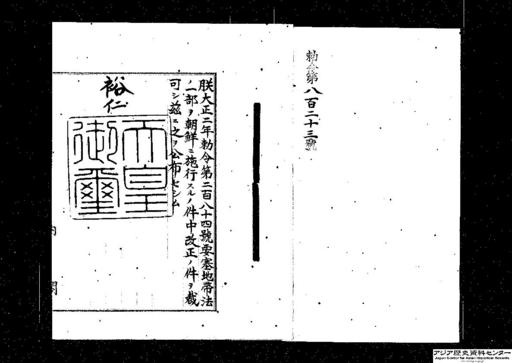 勅令第八百二十三號
朕大正二年勅令第二百八十四號要塞地帶法
ノ一部ヲ朝鮮ニ施行スルノ件中改正ノ件ヲ裁
可シ茲ニ之ヲ公布セシム
裕仁
天皇
御璽
内
閣
アジア歴史資料センター
Japan Center for Asian Historical Records